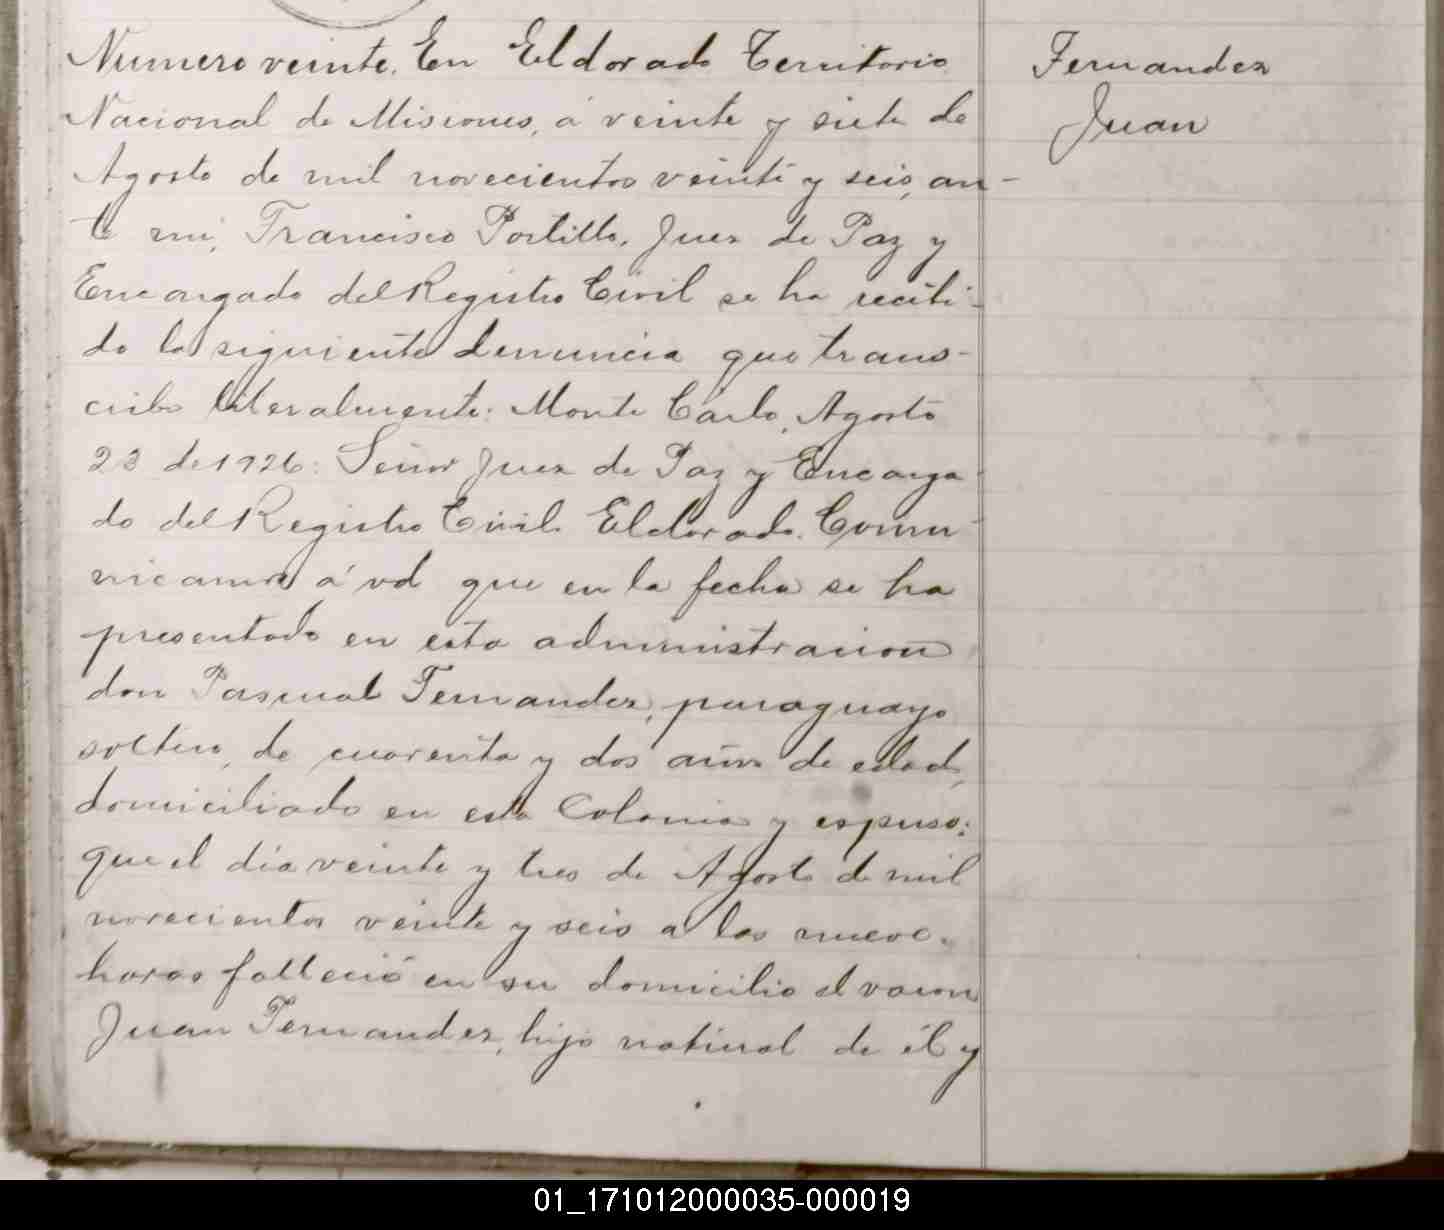 Numero veinte. En Eldorado Territorio
Nacional de Misiones, á veinte y siete de
Agosto de mil novecientos veinte y seis, an-
te mi, Francisco Portillo, Juez de Paz y
Encargado del Registro Civil se ha recibi-
do la siguiente denuncia que trans-
cribo literalmente: Monte Carlo, Agosto
23 de 1926: Señor Juez de Paz y Encarga-
do del Registro Civil Eldorado. Comu-
nicamos á vd que en la fecha se ha
presentado en esta administracion
don Pascual Fernandez, paraguayo
soltero, de cuarenta y dos años de edad,
domiciliado en esta Colonia y espuso:
que el día veinte y tres de Agosto de mil
novecientos veinte y seis a las nueve
horas falleció en su domicilio el varon
Juan Fernandez, hijo natural de él y
Fernandez
Juan
01_171012000035-000019